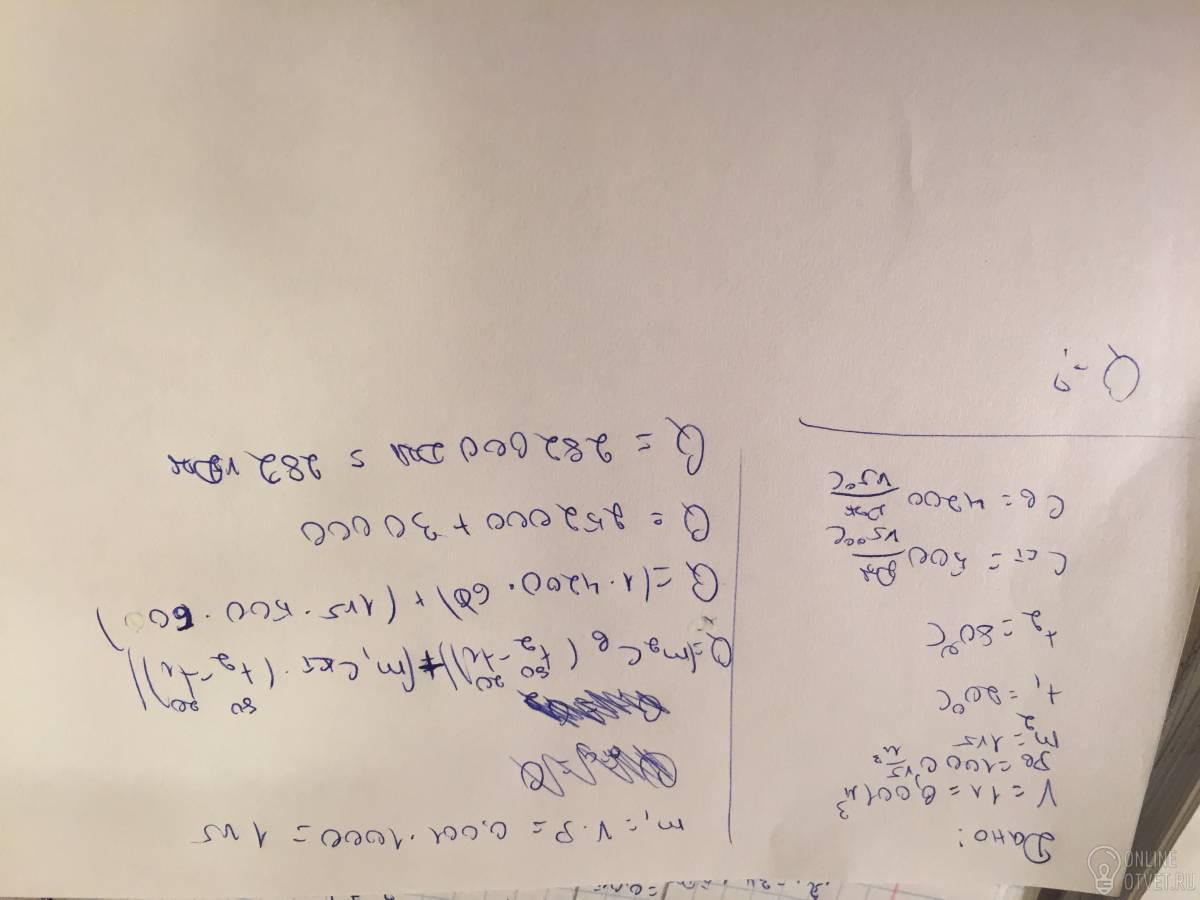 Дано:
V = 1л = 0,001 м³
ρв = 1000 кг/м³
m₂ = 1кг
t₁ = 20°C
t₂ = 80°C
Cст = 500 Дж/кг°C
Cв = 4200 Дж/кг°C
Q - ?
m₁ = V · ρ = 0,001 · 1000 = 1 кг
Q = (m₂ Cв (t₂ - t₁)) + (m₁ Cст · (t₂ - t₁))
80 20 80 20
Q = (1 · 4200 · 60) + (1кг · 500 · 60)
Q = 252 000 + 30 000
Q = 282 000 Дж = 282 кДж
ONLINE
OTVET.RU